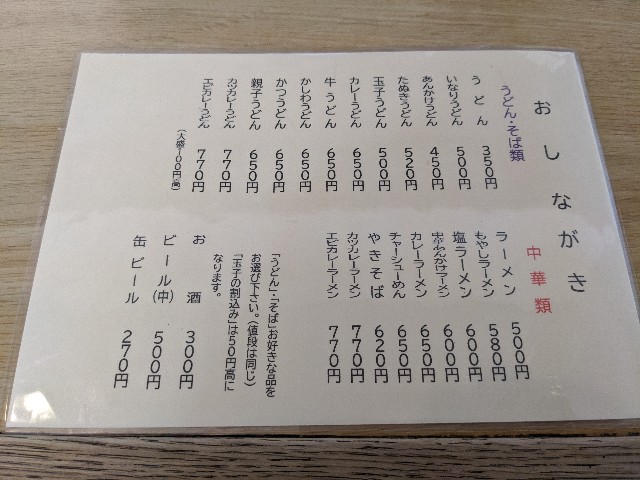 おしながき
うどん・そば類
うどん 350円
いなりうどん 500円
あんかけうどん 450円
たぬきうどん 520円
玉子うどん 500円
カレーうどん 650円
牛うどん 650円
かしわうどん 650円
かつうどん 650円
親子うどん 650円
カツカレーうどん 770円
エビカレーうどん 770円
(大盛100円高)
中華類
ラーメン 500円
もやしラーメン 580円
塩ラーメン 600円
カレーラーメン 650円
チャーシューめん 650円
やきそば 620円
カツカレーラーメン 770円
エビカレーラーメン 770円
「うどん」・「そば」お好きな品を
お選び下さい。(値段は同じ)
「玉子の割込み」は50円高に
なります。
お酒 300円
ビール(中) 500円
缶ビール 270円